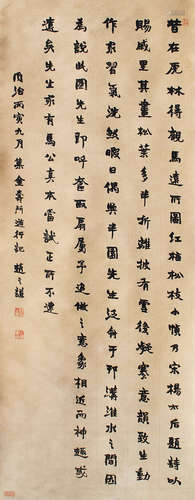 昔在虎林得觀馬遠所圖紅梅松枝小幀乃宋楊太后題詩以
賜戚里其畫松葉多半折離披有雪後凝寒意韻致生動
作家習氣洗然暇日偶與半園先生泛舟于邗溝淮水之間因
為說此圖先生即呼奮取扇屬予追倣之意象相近而神趣或
遺矣先生家有馬公真本當試正所不逮
同治丙寅九月集金壽門游行記 趙之謙